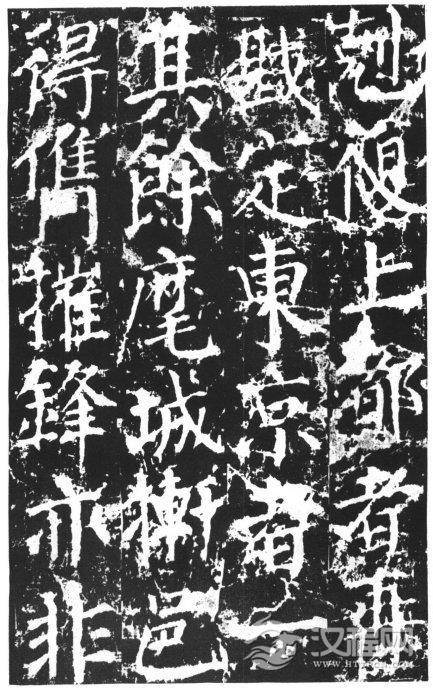 尅復上都者再
戡定東京者一
其餘麾城摲邑
得儁摧鋒亦非
汉程网
WWW.HTTPCN.COM